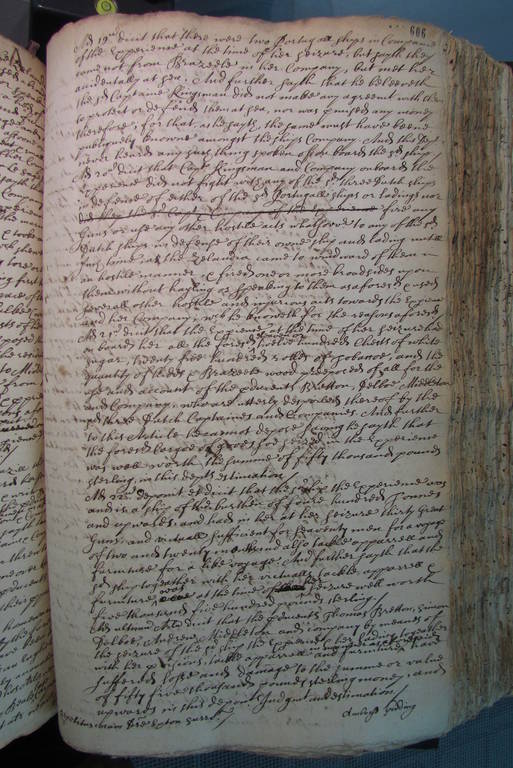 606
Ad 19um dicit that there were two Portugall ships in Companie
of the Experience at the time of her seizure, but sayth they
came not from Brazeele in her Company, but met her
accidentally at sea. And further sayth that he beleeveth
the sd Captaine Kingsman did not make any agreemt with them
to protect or defend them at sea, nor was promised any money
therefore; for that as he sayth, the same must have beene
publiquely knowne amongst the ships Company. And this dept
never heard any such thing spoken of on board the sd ship
Ad 20um dicit that Capt Kingsman and Company on board the
Experience did not fight with any of the sd three Dutch ships
in defense of either of the sd Portugall ships or ladings nor
did they the sd Capt Company of the Experience fire
Guns or use any other hostile acts whatsoever to any of the sd
Dutch ships in defense of their owne ship and lading untill
such time as the Zelandia came to windward of them
in hostile manner & fired one or more broadsides upon
them without hayling or speaking to them as aforesd & used
severall other hostile and injurious acts towards the Experience
and her Company, wch he knoweth for the reasons aforesd
Ad 21um dicit that the Experience at the time of her seizure had
on board her all the foresd twelve hundred Chests of white
sugar, twenty five hundred rolles of tobaccoe, and the
quantity of the sd Brazeele wood predeposed of all for the
use and account of the producents Bretton, Delboe, Middleton
and Company, who were utterly despoiled thereof by the
sd three Dutch Captaines and Companies. And further
to this Article he cannot depose saving he sayth that
the foresd cargoe of goods soe seized in the Experience
was well worth the summe of fifty thousand pounds
sterling, in this depts estimation
Ad 22um deponit et dicit that the ship the Experience was
and is a ship of the burthen of foure hundred Tonnes
and upwards, and had in her at her seizure thirty Great
Guns, and victualls sufficient for seaventy men for a voyage
of two and twenty months and also tackle apparrell and
furniture for a like voyage. And further sayth that the
sd ship together with her victualls, tackle, apparrell &
furniture, was at the time of seizure well worth
five thousand five hundred pounds sterling
Ad ultimum Ar dicit that the producents Thomas Bretton, Simon
Delboe, Andrew Middleton and company by meanes of
the seizure of the sd ship the Experience & her lading together
with her provisions, tackle apparrell and furniture, have
suffered losse and damage to the summe or value
of fifty five thousand pounds sterling money and
upwards in this deponts Judgmt and estimation